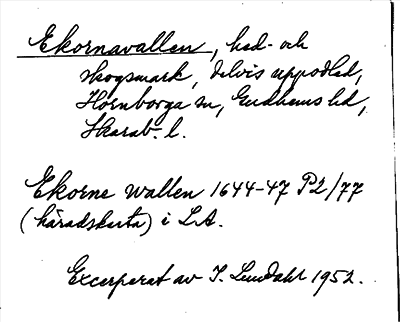 Ekornavallen, hed- och
skogsmark, delvis uppodlad,
Hornborga sn, Gudhems hd,
Skarab. l.
Ekorne wallen 1644-47 P2/77
(häradskarta) i LA.
Excerperat av I. Lundahl 1952.